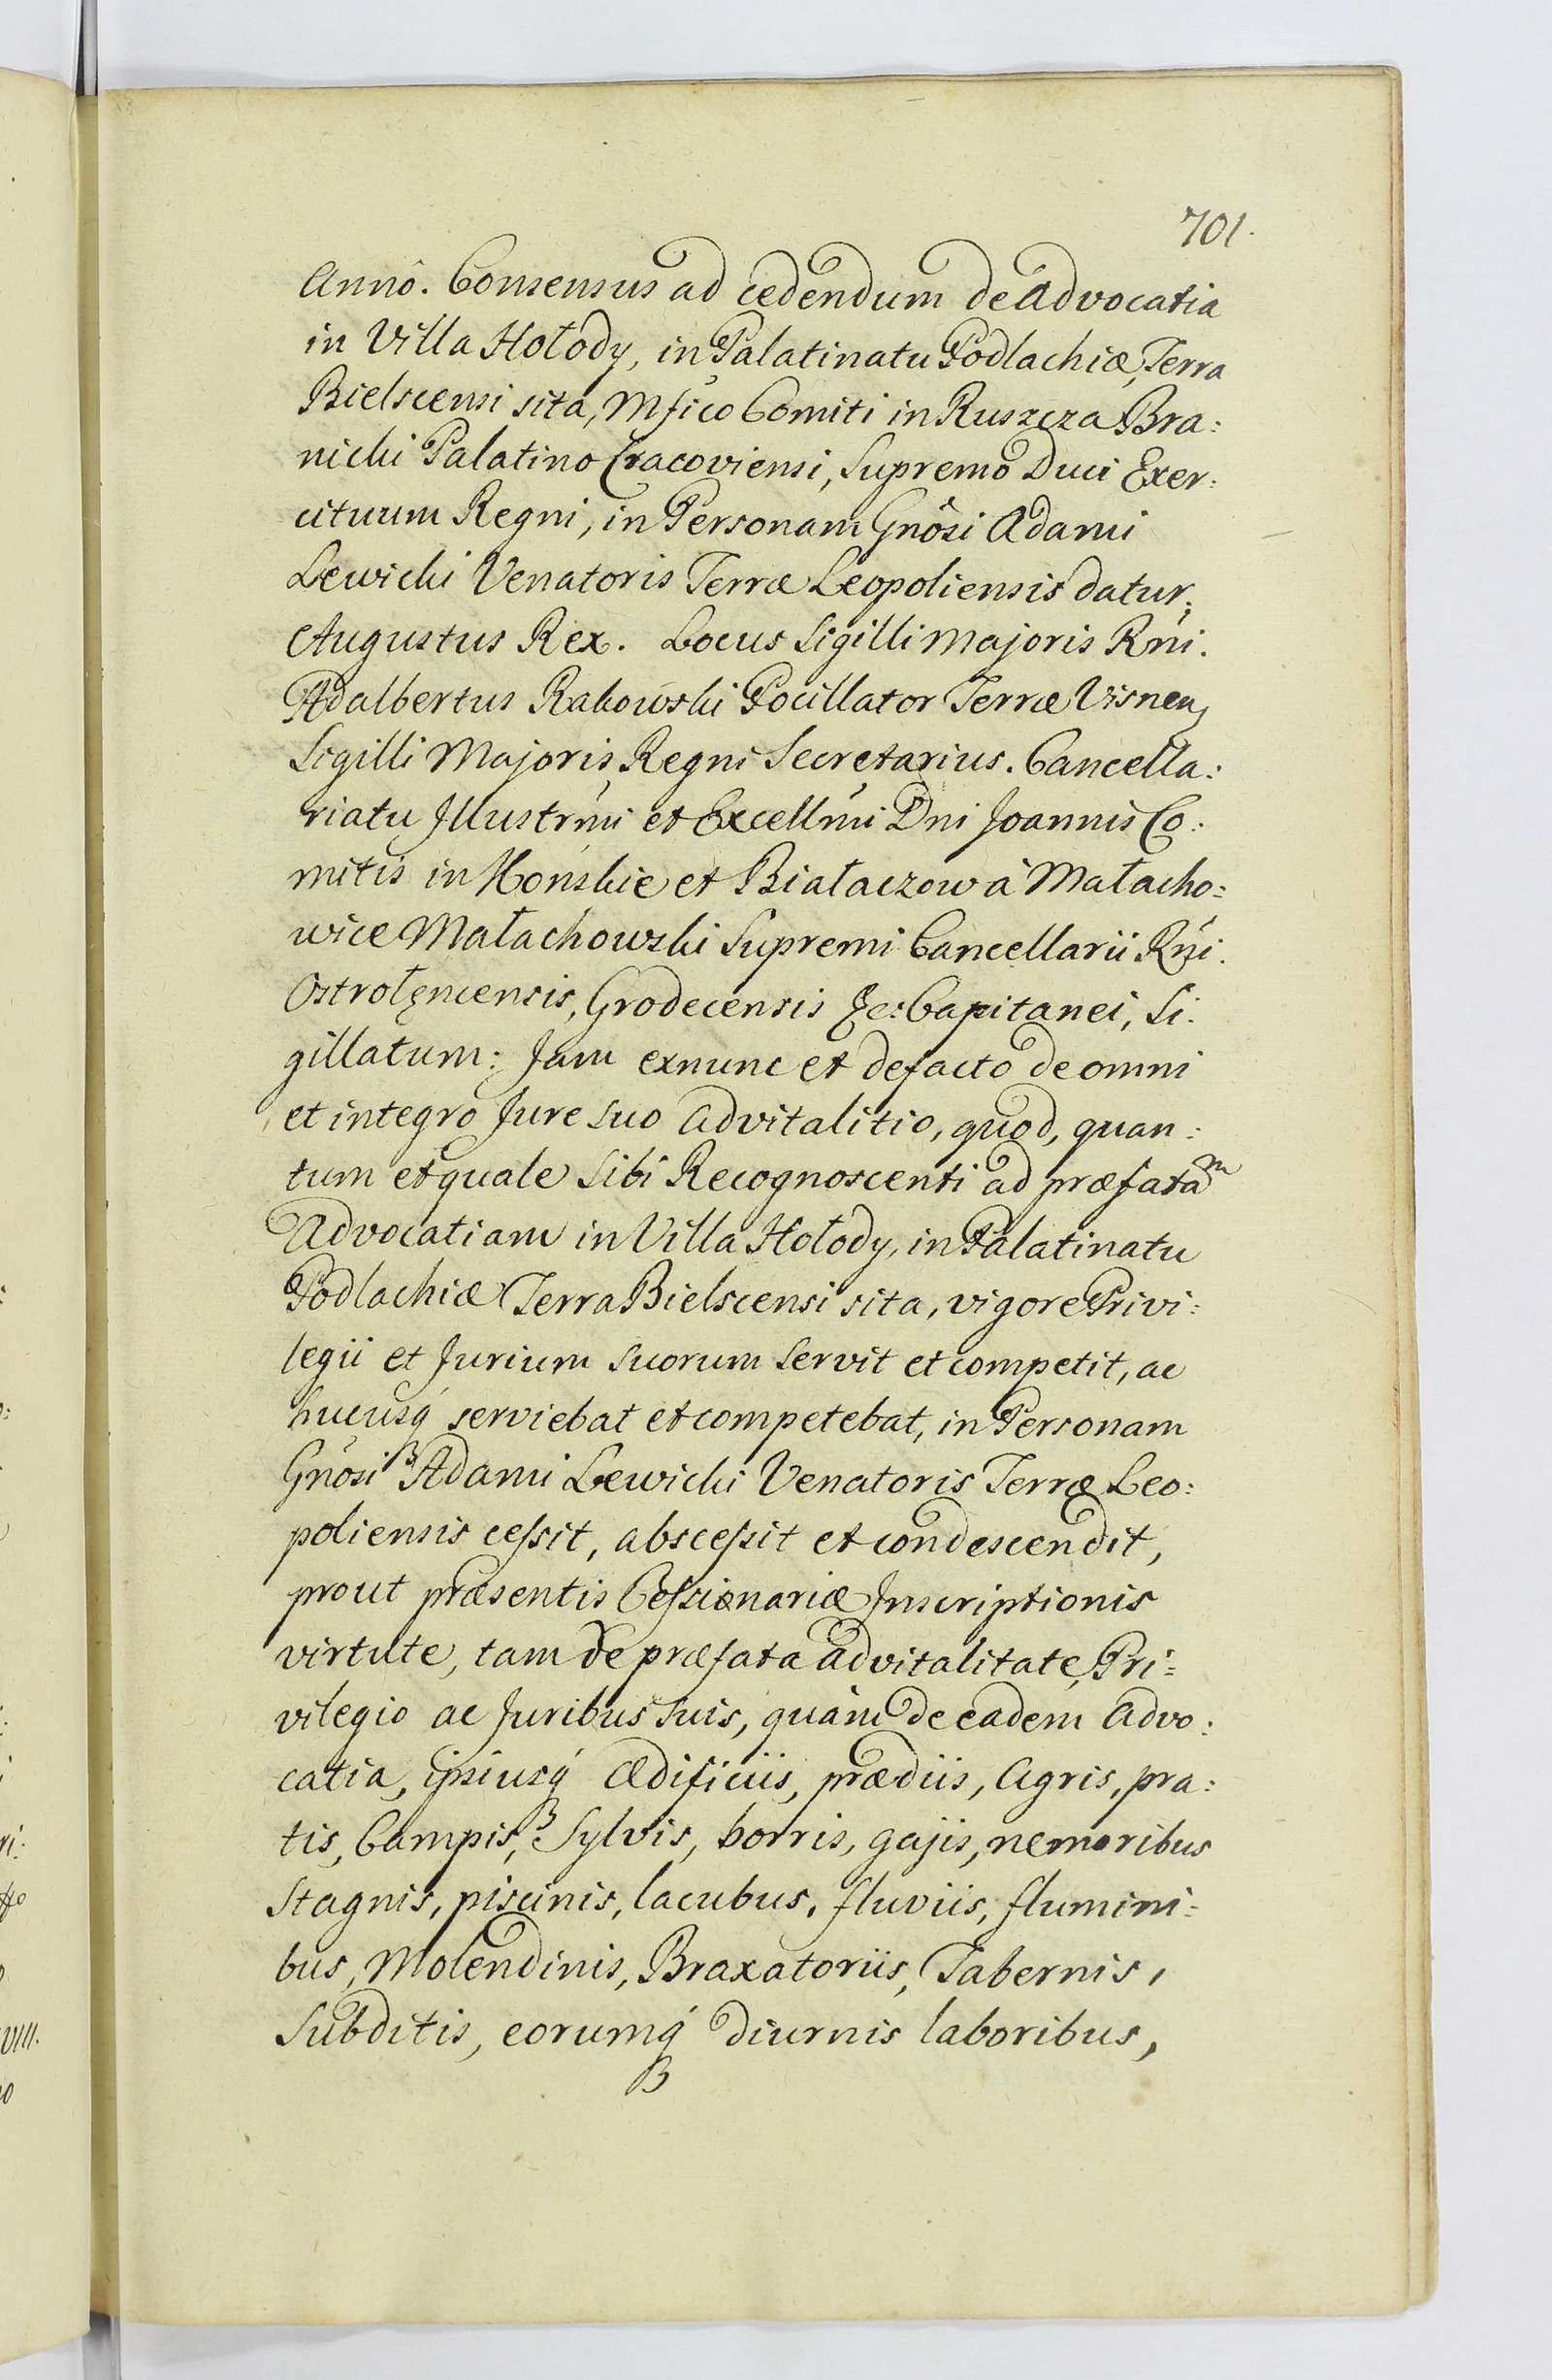 701.
Annô. Consensus ad cedendum de Advocatia
in Villa Hołody, in Palatinatu Podlachiæ, Terra
Bielscensi sita, Mfico Comiti in Ruszcza Bra:
nicki Palatino Cracoviensi, Supremo Duci Exer:
cituum Regni, in Personam Gnôsi Adami
Lewicki Venatoris Terræ Leopoliensis datur;
Augustus Rex. Locus Sigilli Majoris Rni.
Adalbertus Rakowski Pocillator Terræ Visnen,
Sigilli Majoris Regni Secretarius. Cancella:
riatu Illustrmi et Excellmi Dni Joannis Co:
mitis in Końskie et Białaczow à Małacho:
wice Małachowski Supremi Cancellarii Rni.
Ostrołęncensis, Grodecensis &c: Capitanei, Si:
gillatum: Jam exnunc et defacto de omni
et integro Jure suo advitalitio, quod, quan:
tum et quale sibi Recognoscenti ad præfatam
Advocatiam in Villa Hołody, in Palatinatu
Podlachiæ Terra Bielscensi sita, vigore Privi:
legii et Jurium suorum servit et competit, ac
hucusq́ serviebat et competebat, in Personam
Gnôsi Adami Lewicki Venatoris Terræ Leo:
poliensis cessit, abscessit et condescendit,
prout præsentis Cessionariæ Inscriptionis
virtute, tam de præfata advitalitate, Pri=
vilegio ac Juribus suis, quàm de eadem Advo:
catia, ipsiusq́ Ædificiis, prædiis, Agris, pra:
tis, Campis, Sylvis, borris, gajis, nemoribus
Stagnis, piscinis, lacubus, fluviis, flumini=
bus, Molendinis, Braxatoriis, Tabernis,
Subditis, eorumq́ diurnis laboribus,